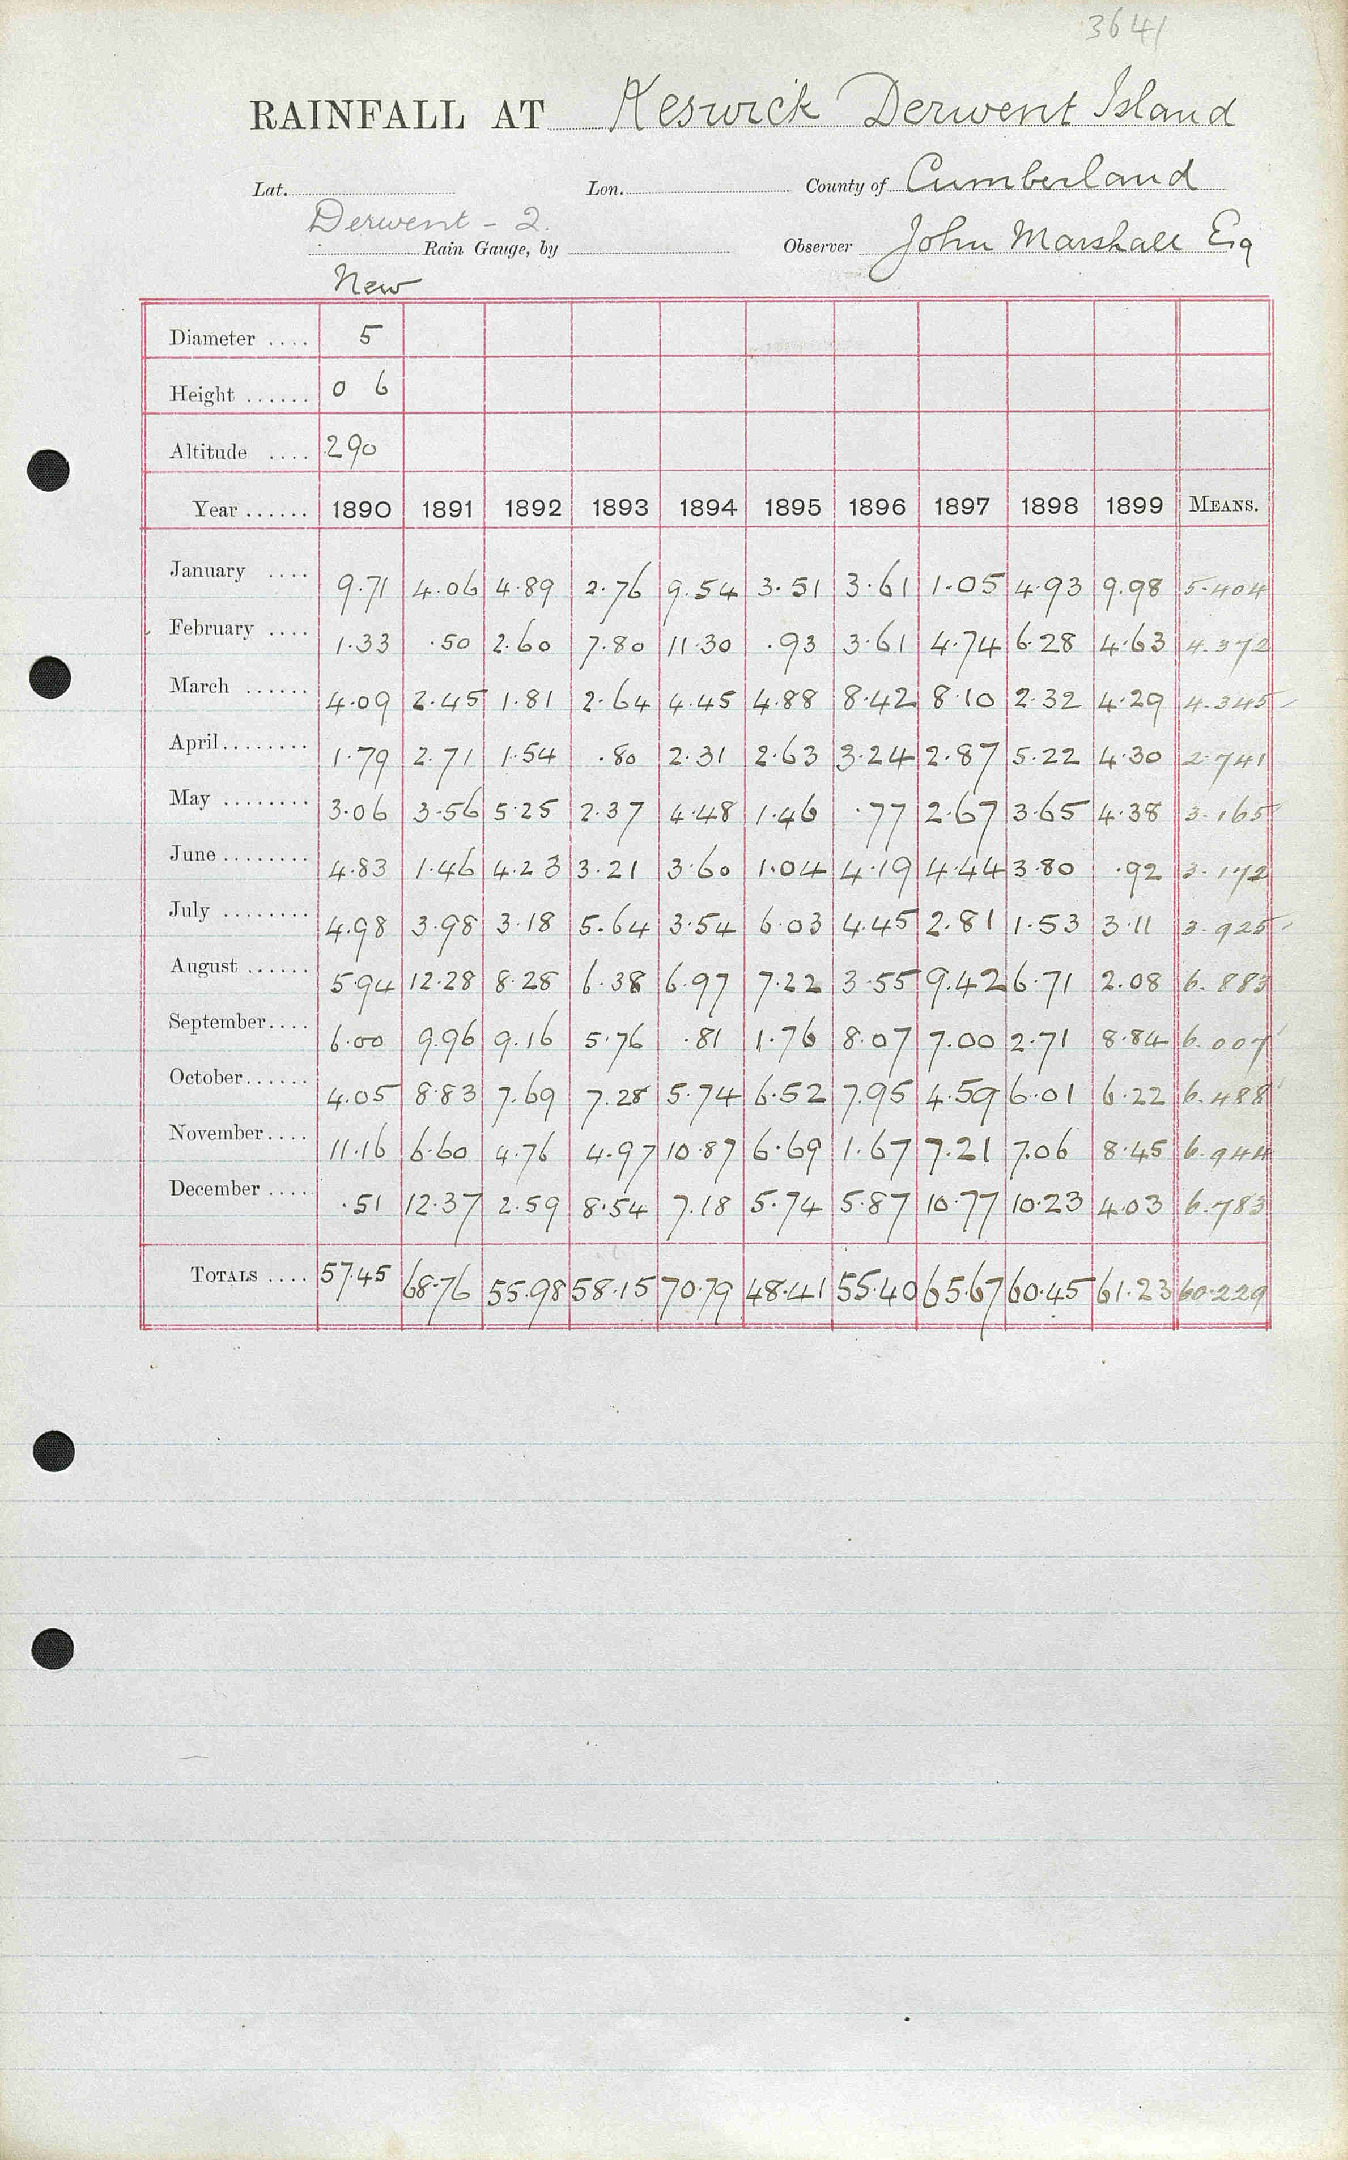 3641
RAINFALL AT Keswick Derwent Island
Lat. Lon. County of Cumberland
Derwent - 2.
Rain Gauge, by Observer John Marshall Esq
New
Diameter .... 5
Height ...... 0 6
Altitude .... 290
Year ...... 1890 1891 1892 1893 1894 1895 1896 1897 1898 1899 MEANS.
January .... 9.71 4.06 4.89 2.76 9.54 3.51 3.61 1.05 4.93 9.98 5.404
February .... 1.33 .50 2.60 7.80 11.30 .93 3.61 4.74 6.28 4.63 4.372
March ...... 4.09 2.45 1.81 2.64 4.45 4.88 8.42 8.10 2.32 4.29 4.345
April ........ 1.79 2.71 1.54 .80 2.31 2.63 3.24 2.87 5.22 4.30 2.741
May ........ 3.06 3.56 5.25 2.37 4.48 1.46 .77 2.67 3.65 4.38 3.165
June ........ 4.83 1.46 4.23 3.21 3.60 1.04 4.19 4.44 3.80 .92 3.172
July ........ 4.98 3.98 3.18 5.64 3.54 6.03 4.45 2.81 1.53 3.11 3.925
August ...... 5.94 12.28 8.28 6.38 6.97 7.22 3.55 9.42 6.71 2.08 6.883
September .... 6.00 9.96 9.16 5.76 .81 1.76 8.07 7.00 2.71 8.84 6.007
October ...... 4.05 8.83 7.69 7.28 5.74 6.52 7.95 4.59 6.01 6.22 6.488
November .... 11.16 6.60 4.76 4.97 10.87 6.69 1.67 7.21 7.06 8.45 6.944
December .... .51 12.37 2.59 8.54 7.18 5.74 5.87 10.77 10.23 4.03 6.783
TOTALS .... 57.45 68.76 55.98 58.15 70.79 48.41 55.40 65.67 60.45 61.23 60.229